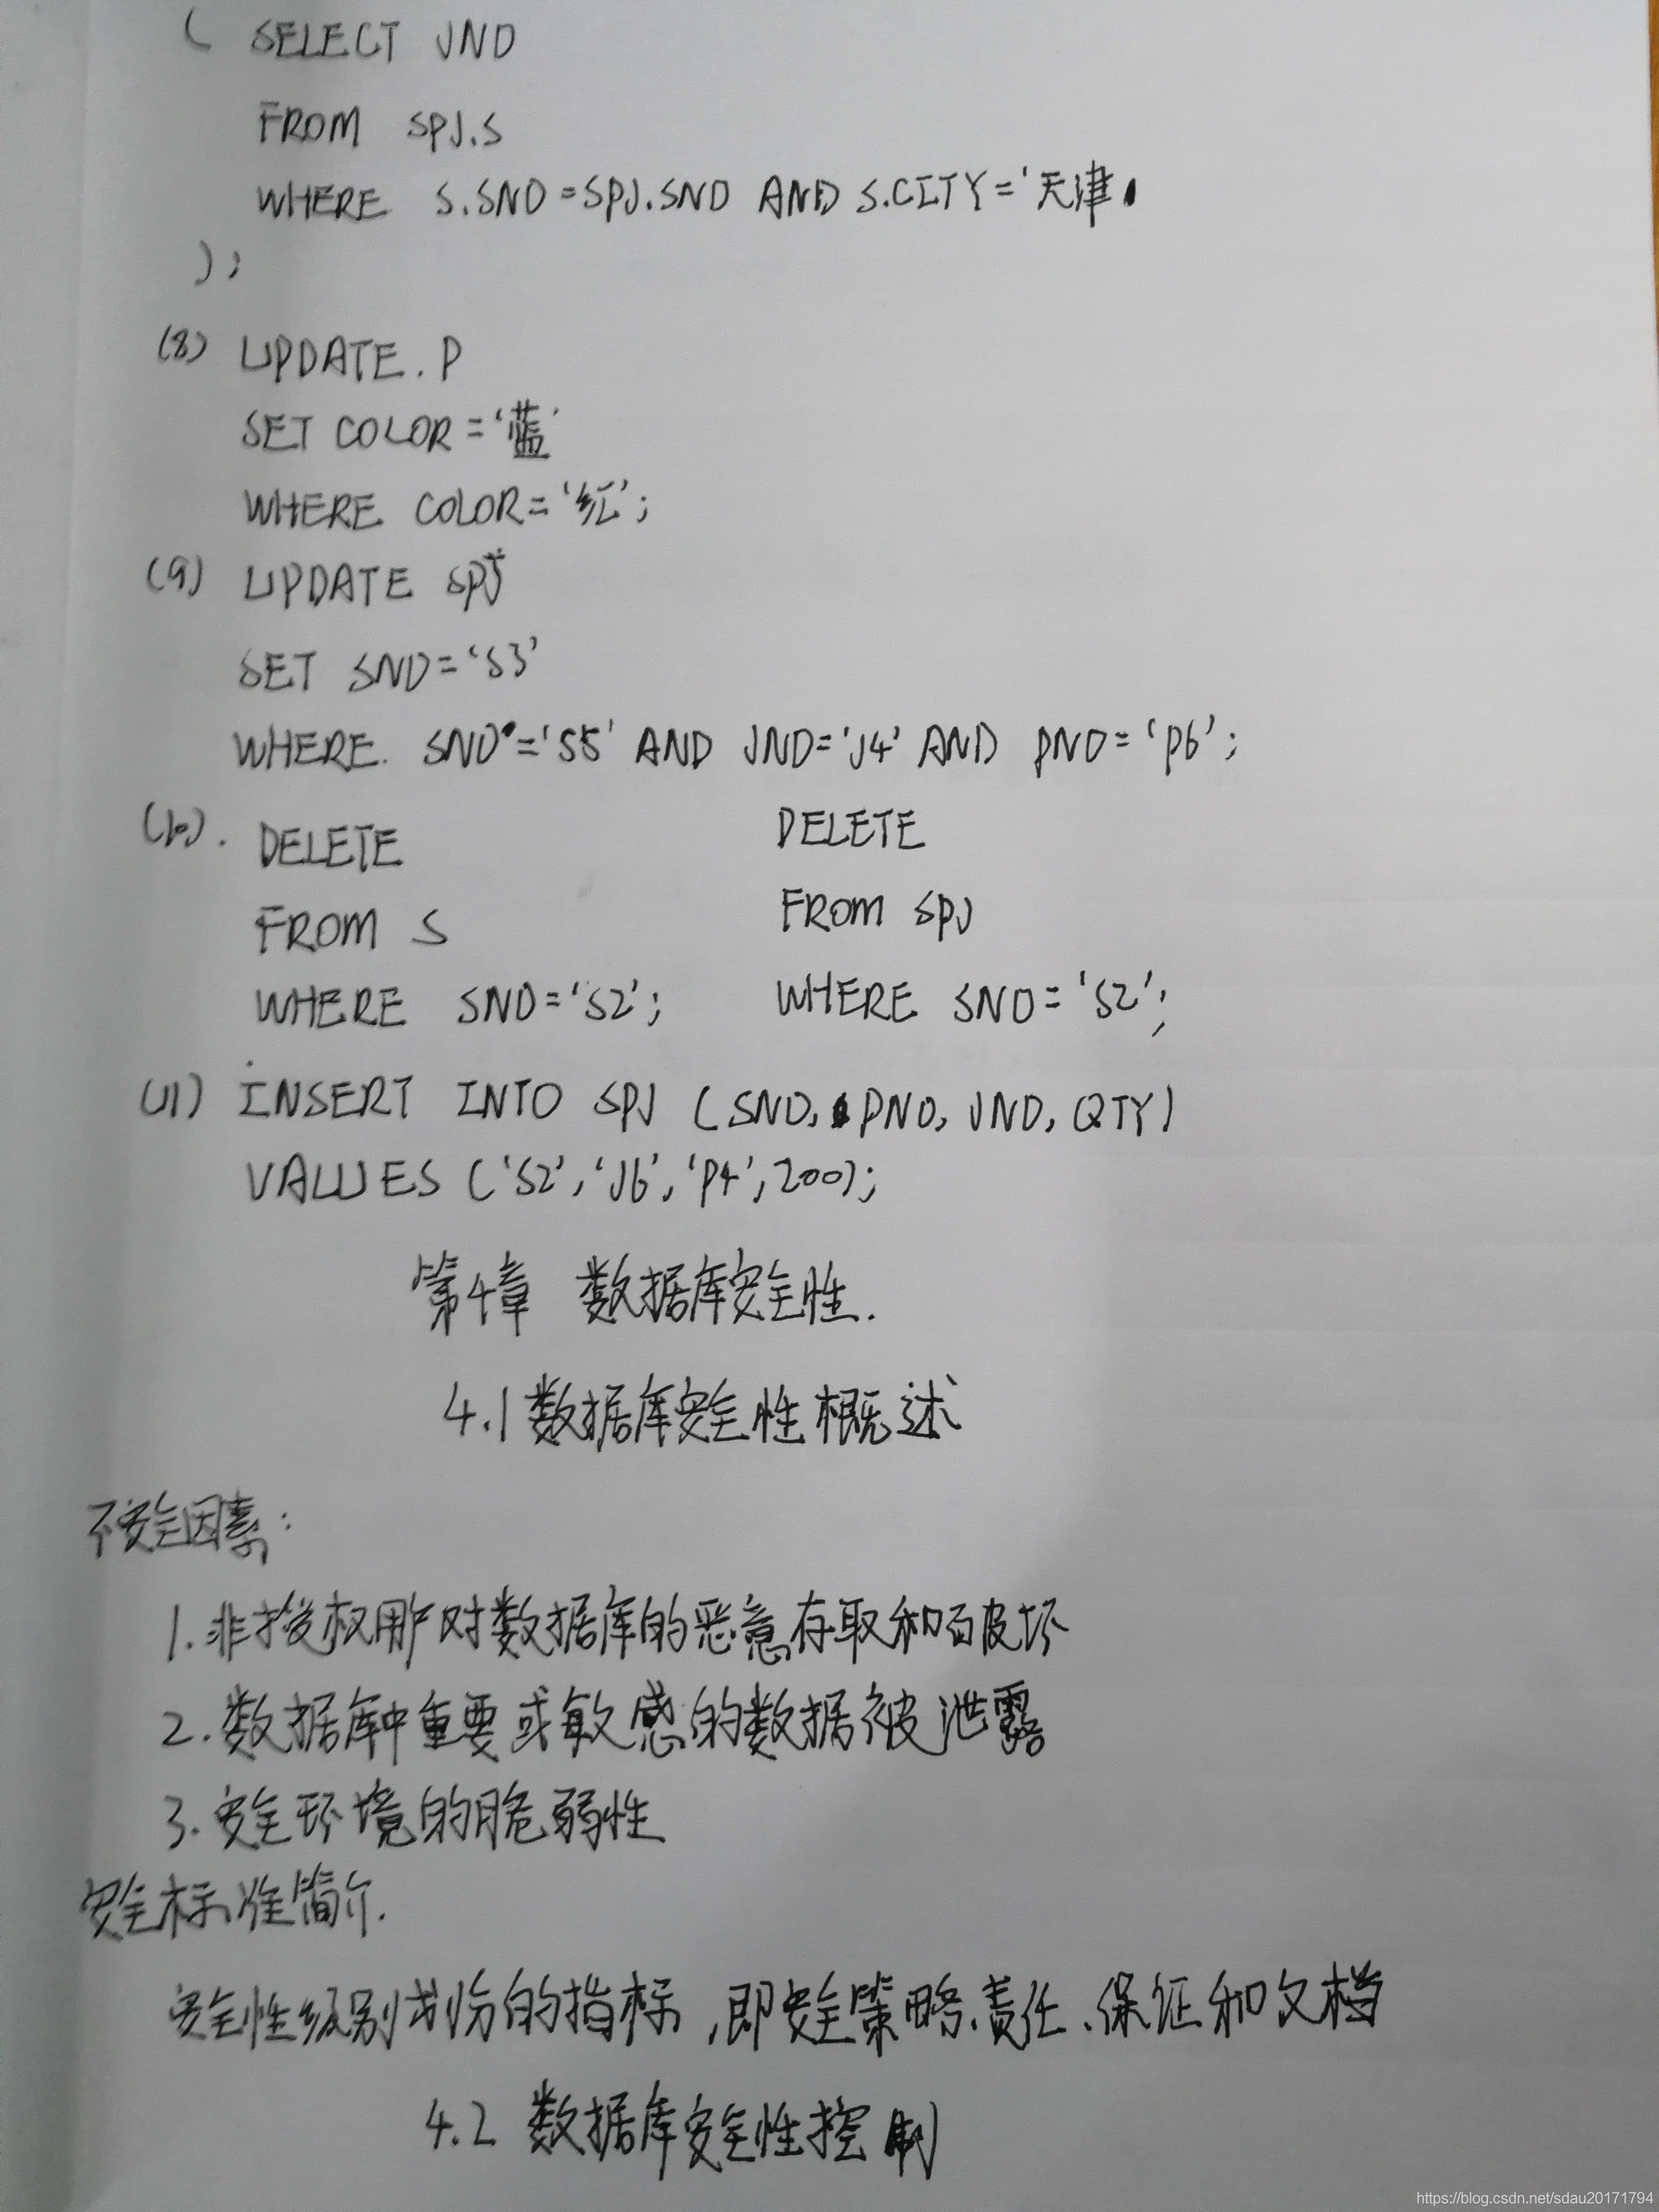 ( SELECT JNO
FROM SPJ.S
WHERE S.SNO=SPJ.SNO AND S.CITY='天津'
);
(8) UPDATE.P
SET COLOR='蓝'
WHERE COLOR='红';
(9) UPDATE SPJ
SET SNO='S3'
WHERE. SNO='S5' AND JNO='J4' AND PNO='P6';
(10). DELETE
FROM S
WHERE SNO='S2';
DELETE
FROM SPJ
WHERE SNO='S2';
(11) INSERT INTO SPJ (SNO, PNO, JNO, QTY)
VALUES ('S2','J6','P4',200);
第4章 数据库安全性.
4.1 数据库安全性概述
不安全因素:
1.非授权用户对数据库的恶意存取和破坏
2.数据库中重要或敏感的数据被泄露
3.安全环境的脆弱性
安全标准简介.
安全性级别划份的指标,即安全策略、责任、保证和文档
4.2 数据库安全性控制
https://blog.csdn.net/sdau20171794